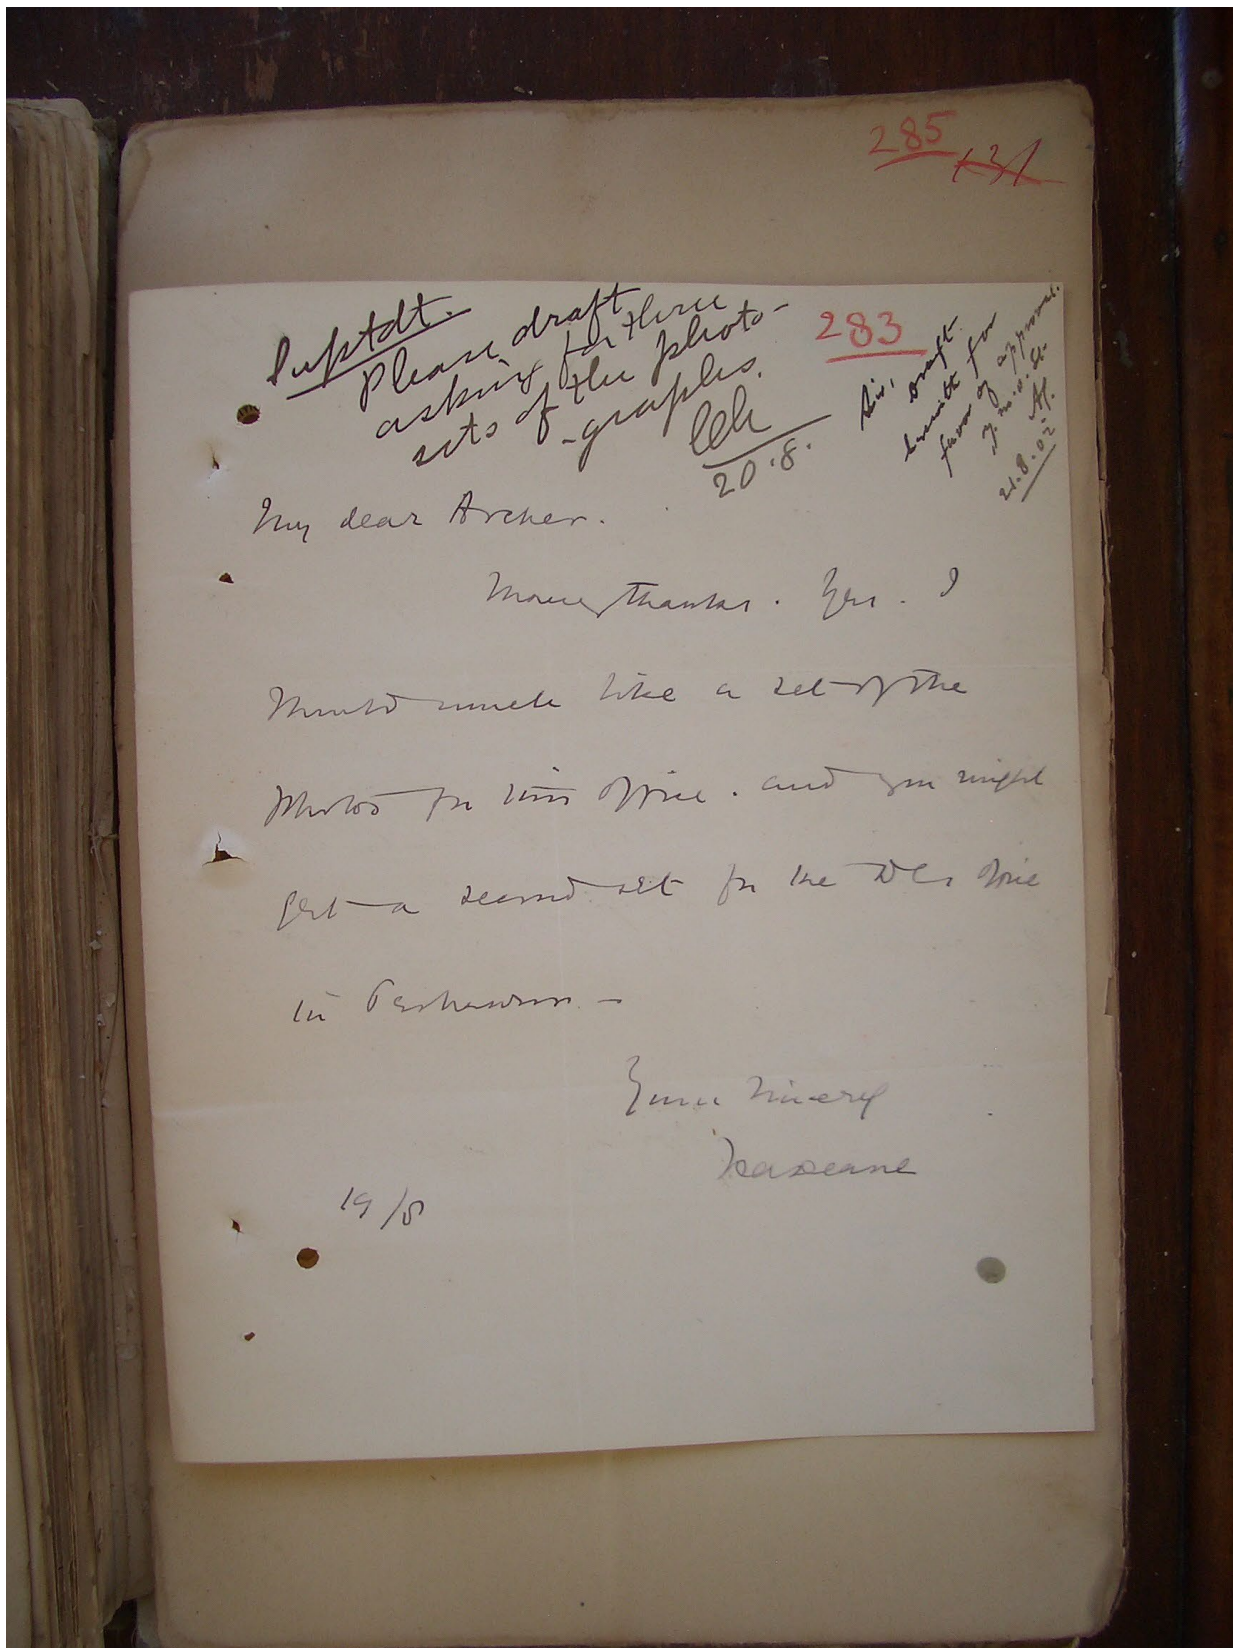 285
283
Suptdt.
Please draft
asking for three
sets of the photo-
-graphs.
20.8.
Sir,
Draft
herewith for
favor of approval.
21.8.02
My dear Archer.
Many thanks. Yes. I
should much like a set of the
photos for this office. and you might
get a second set for the DCs office
in Peshawar –
Yours sincerely
HADeane
19/8